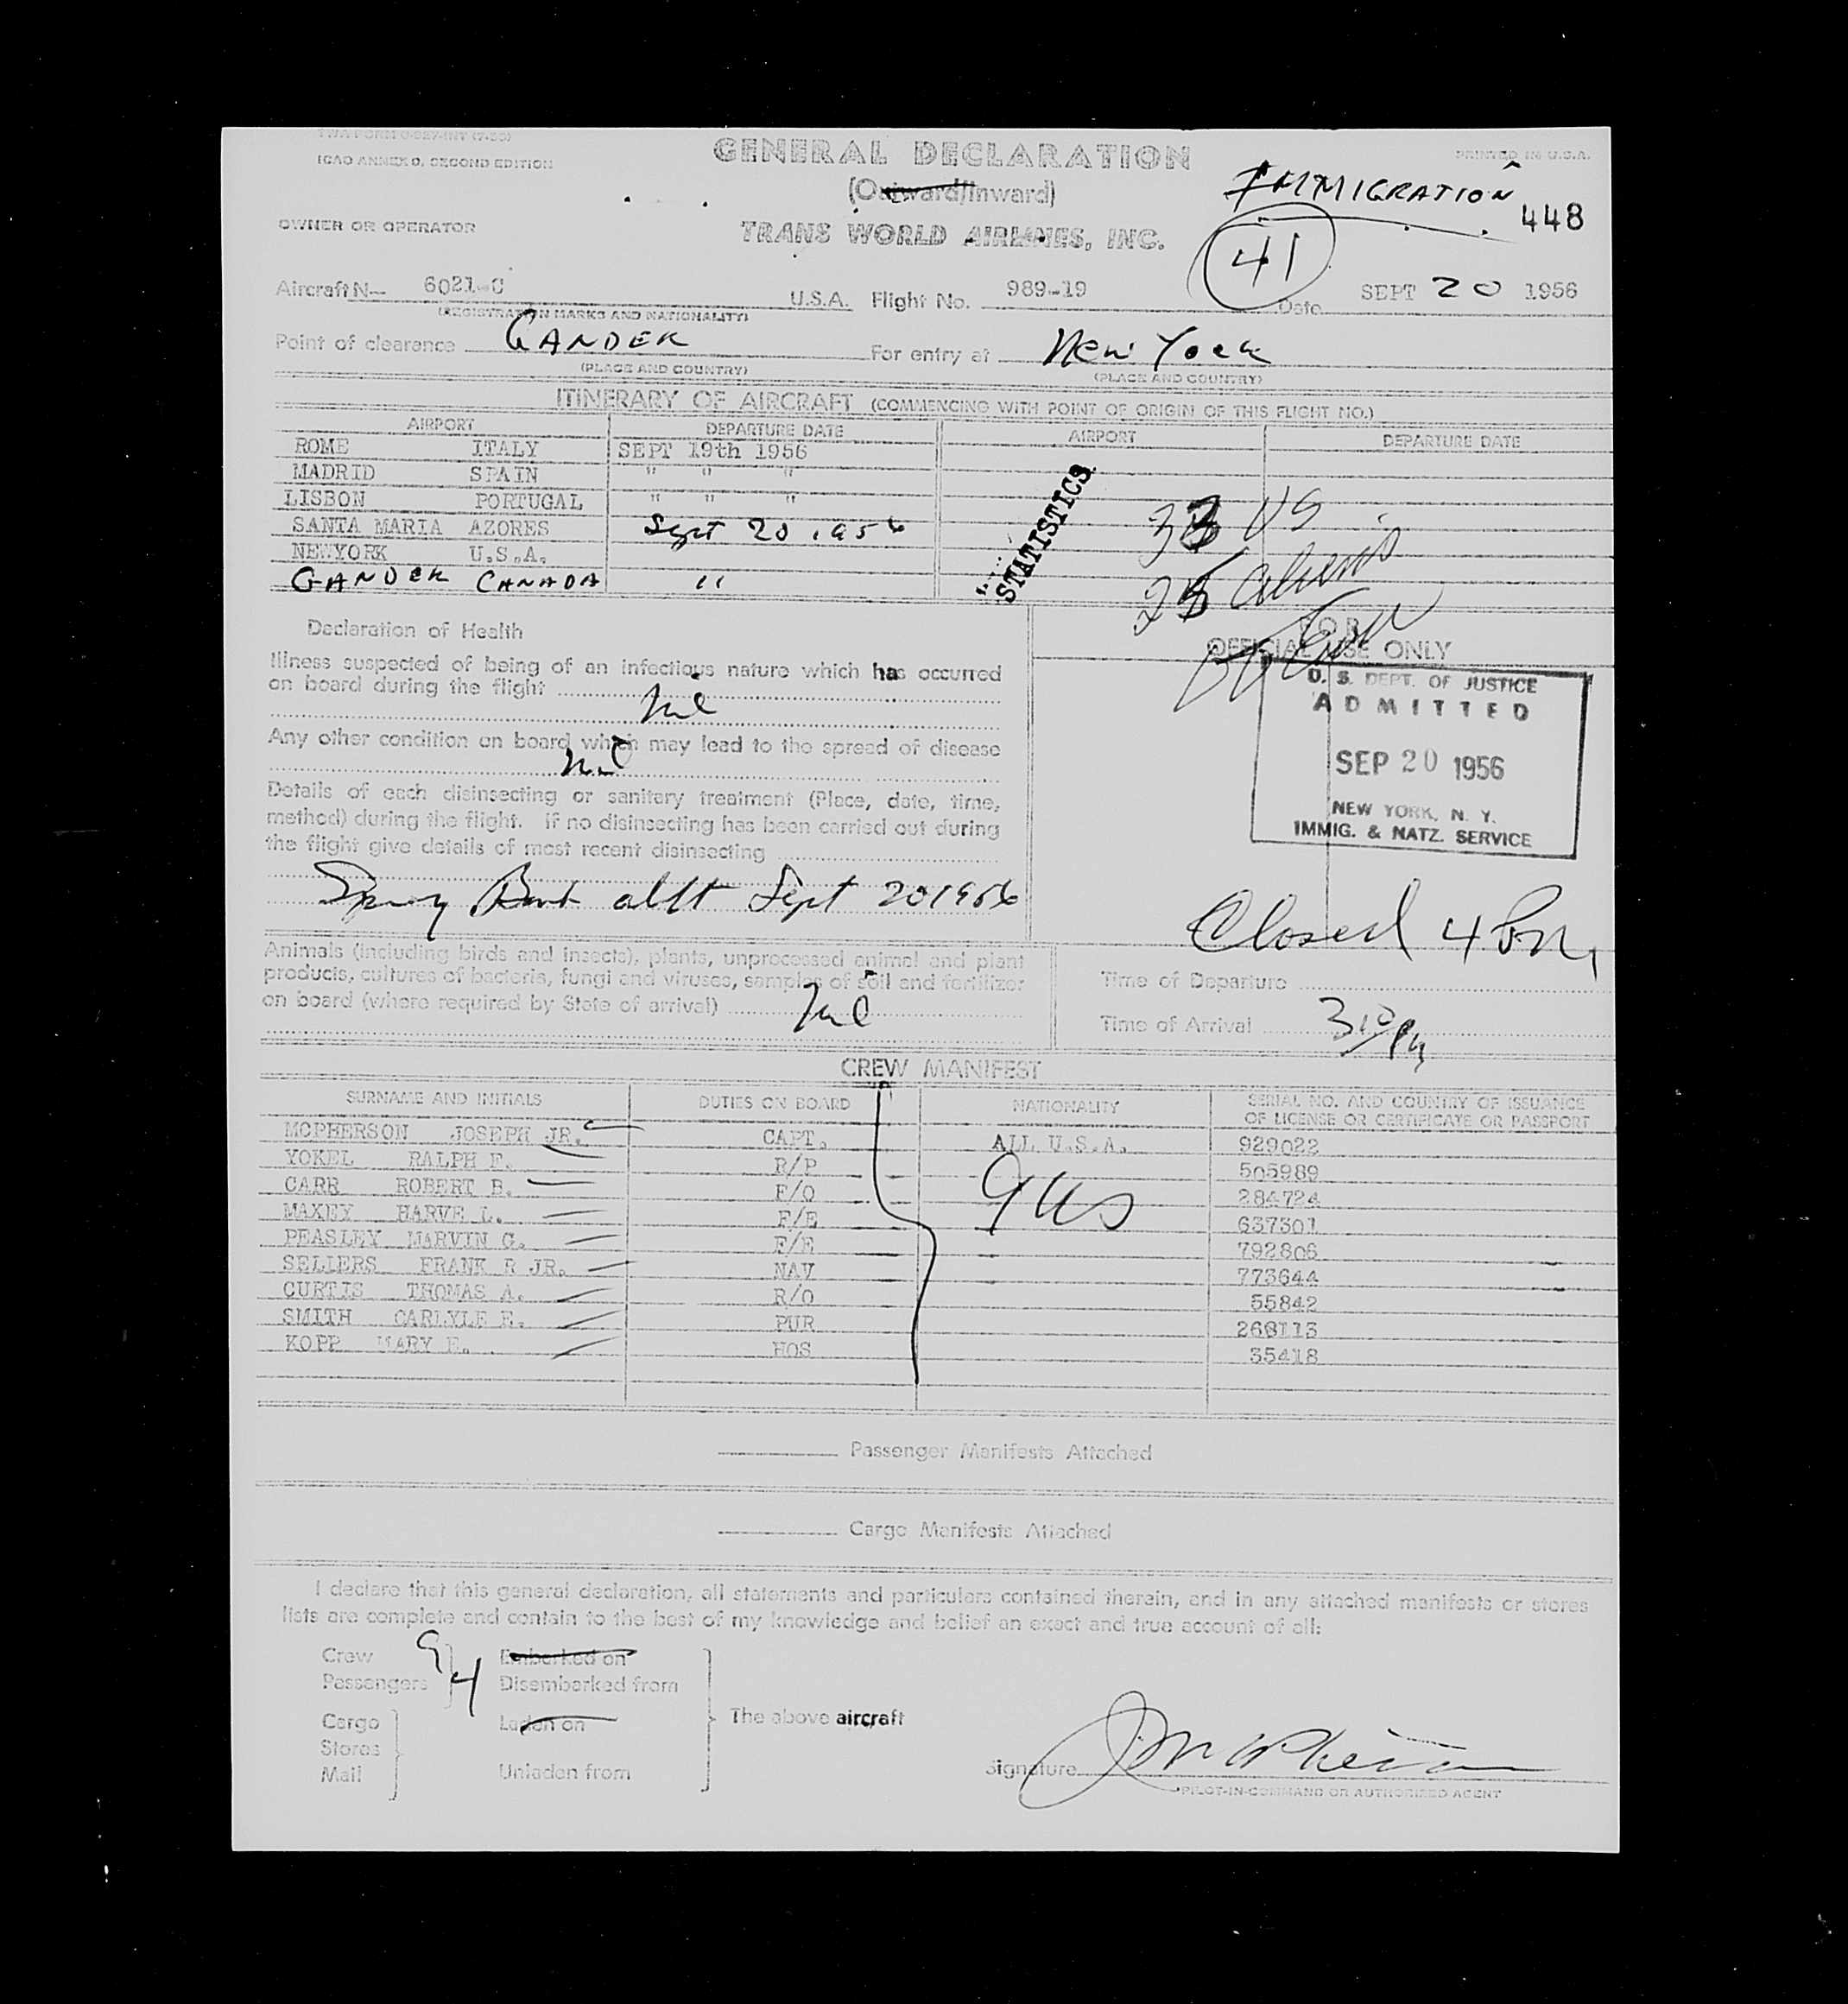 TWA FORM O-827-INT (7-55)
ICAO ANNEX 9, SECOND EDITION
GENERAL DECLARATION
PRINTED IN U.S.A.
(Outward/Inward)
IMMIGRATION
448
OWNER OR OPERATOR
TRANS WORLD AIRLINES, INC.
41
Aircraft N— 6021-C U.S.A. Flight No. 989-19 Date SEPT 20 1956
(REGISTRATION MARKS AND NATIONALITY)
Point of clearance GANDER For entry at New York
(PLACE AND COUNTRY) (PLACE AND COUNTRY)
ITINERARY OF AIRCRAFT (COMMENCING WITH POINT OF ORIGIN OF THIS FLIGHT NO.)
AIRPORT DEPARTURE DATE AIRPORT DEPARTURE DATE
ROME ITALY SEPT 19th 1956
MADRID SPAIN " " "
LISBON PORTUGAL " " "
SANTA MARIA AZORES Sept 20 1956
NEWYORK U.S.A.
GANDER CANADA "
STATISTICS
33 US
25 Aliens
Declaration of Health
FOR
OFFICIAL USE ONLY
Illness suspected of being of an infectious nature which has occurred
on board during the flight
Nil
Any other condition on board which may lead to the spread of disease
Nil
Details of each disinsecting or sanitary treatment (Place, date, time,
method) during the flight. If no disinsecting has been carried out during
the flight give details of most recent disinsecting
Sept 20 1956
U. S. DEPT. OF JUSTICE
ADMITTED
SEP 20 1956
NEW YORK, N. Y.
IMMIG. & NATZ. SERVICE
Closed 4 Pm
Animals (including birds and insects), plants, unprocessed animal and plant
products, cultures of bacteria, fungi and viruses, samples of soil and fertilizer
on board (where required by State of arrival)
Nil
Time of Departure
Time of Arrival 310 PM
CREW MANIFEST
SURNAME AND INITIALS DUTIES ON BOARD NATIONALITY SERIAL NO. AND COUNTRY OF ISSUANCE
OF LICENSE OR CERTIFICATE OR PASSPORT
MCPHERSON JOSEPH JR. CAPT. ALL U.S.A. 929022
YOKEL RALPH F. R/P 505989
CARR ROBERT B. F/O 284724
9 US
MAXEY HARVE L. F/E 637301
PEASLEY MARVIN G. F/E 792806
SELLERS FRANK R JR. NAV 773644
CURTIS THOMAS A. R/O 55842
SMITH CARLYLE E. PUR 268113
KOPP MARY E. HOS 35418
Passenger Manifests Attached
Cargo Manifests Attached
I declare that this general declaration, all statements and particulars contained therein, and in any attached manifests or stores
lists are complete and contain to the best of my knowledge and belief an exact and true account of all:
Crew 9 Embarked on
Passengers Disembarked from
Cargo Laden on The above aircraft
Stores
Mail Unladen from
Signature J McPherson
PILOT-IN-COMMAND OR AUTHORIZED AGENT